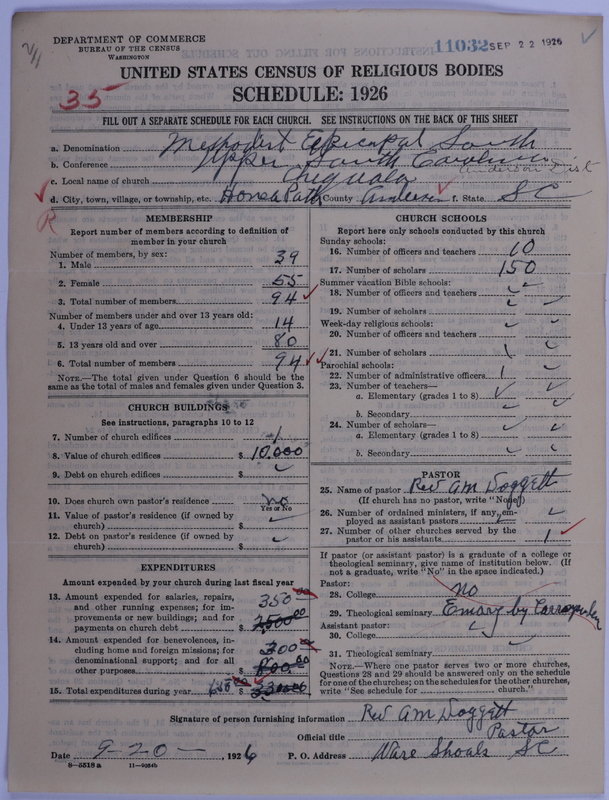 DEPARTMENT OF COMMERCE
BUREAU OF THE CENSUS
WASHINGTON
11032 SEP 22 1926
UNITED STATES CENSUS OF RELIGIOUS BODIES
SCHEDULE: 1926
35
FILL OUT A SEPARATE SCHEDULE FOR EACH CHURCH. SEE INSTRUCTIONS ON THE BACK OF THIS SHEET
a. Denomination Methodist Episcopal South
b. Conference Upper South Carolina
Anderson Dist
c. Local name of church Chiquola
d. City, town, village, or township, etc. Honea Path County Anderson f. State S C
R
MEMBERSHIP
Report number of members according to definition of member in your church
Number of members, by sex:
1. Male 39
2. Female 55
3. Total number of members 94
Number of members under and over 13 years old:
4. Under 13 years of age 14
5. 13 years old and over 80
6. Total number of members 94
NOTE.—The total given under Question 6 should be the same as the total of males and females given under Question 3.
CHURCH BUILDINGS
See instructions, paragraphs 10 to 12
7. Number of church edifices 1
8. Value of church edifices $ 10.000
9. Debt on church edifices $
10. Does church own pastor's residence No
Yes or No
11. Value of pastor's residence (if owned by church) $
12. Debt on pastor's residence (if owned by church) $
EXPENDITURES
Amount expended by your church during last fiscal year
13. Amount expended for salaries, repairs, and other running expenses; for improvements or new buildings; and for payments on church debt $ 350.00
14. Amount expended for benevolences, including home and foreign missions; for denominational support; and for all other purposes $ 300.00
15. Total expenditures during year 650.00 $
CHURCH SCHOOLS
Report here only schools conducted by this church
Sunday schools:
16. Number of officers and teachers 10
17. Number of scholars 150
Summer vacation Bible schools:
18. Number of officers and teachers
19. Number of scholars
Week-day religious schools:
20. Number of officers and teachers
21. Number of scholars
Parochial schools:
22. Number of administrative officers
23. Number of teachers—
a. Elementary (grades 1 to 8)
b. Secondary
24. Number of scholars—
a. Elementary (grades 1 to 8)
b. Secondary
PASTOR
25. Name of pastor Rev A M Doggett
(If church has no pastor, write "None")
26. Number of ordained ministers, if any, employed as assistant pastors
27. Number of other churches served by the pastor or his assistants 1
If pastor (or assistant pastor) is a graduate of a college or theological seminary, give name of institution below. (If not a graduate, write "No" in the space indicated.)
Pastor:
28. College No
29. Theological seminary Emory by
Assistant pastor:
30. College
31. Theological seminary
NOTE.—Where one pastor serves two or more churches, Questions 28 and 29 should be answered only on the schedule for one of the churches; on the schedules for the other churches, write "See schedule for church."
Signature of person furnishing information Rev A M Doggett
Official title Pastor
Date 9-20- , 1926 P. O. Address Ware Shoals S C
8-5518 a